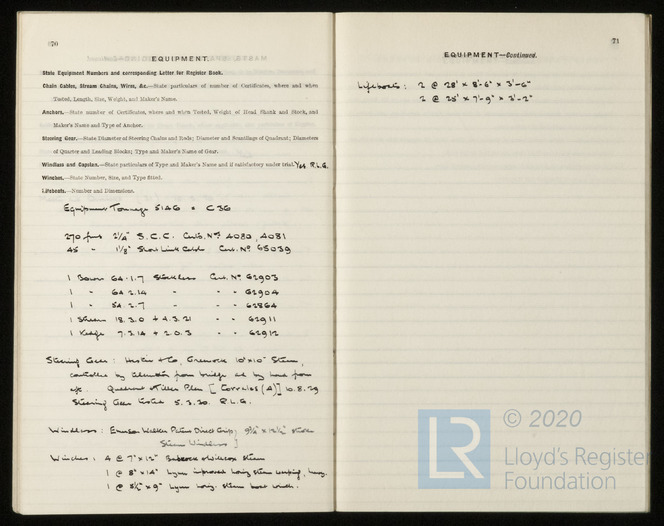 70
EQUIPMENT.
State Equipment Numbers and corresponding Letter for Register Book.
Chain Cables, Stream Chains, Wires, &c.—State particulars of number of Certificates, where and when
Tested, Length, Size, Weight, and Maker's Name.
Anchors.—State number of Certificates, where and when Tested, Weight of Head Shank and Stock, and
Maker's Name and Type of Anchor.
Steering Gear.—State Diameter of Steering Chains and Rods; Diameter and Scantlings of Quadrant; Diameters
of Quarter and Leading Blocks; Type and Maker's Name of Gear.
Windlass and Capstan.—State particulars of Type and Maker's Name and if satisfactory under trial. Yes R.L.G.
Winches.—State Number, Size, and Type fitted.
Lifeboats.—Number and Dimensions.
Equipment Tonnage
270 fms 2 1/4" S.C.C. Certs. Nos 4080, 4081
45 " 1 1/8" Short Link Cable Cert. No 65039
1 Bower 64.1.7 Stockless Cert. No 62903
1 " 64.2.14 " " 62904
1 " 54.2.7 " " 62864
1 Stream 18.3.0 + 4.3.21 " " 62911
1 Kedge 7.3.14 + 2.0.3 " " 62912
Steering Gear: Hastie & Co, Greenock 10"x10" Steam,
controlled by telemotor from bridge and by hand from
aft. Quadrant & Tiller Plan [Corrales (A)] 10.8.29
Steering Gear tested 5.3.30. R.L.G.
Windlass: Emerson Walker Patent Direct Grip;
Steam Windlass ]
Winches: 4 @ 7" x 12" Babcock & Wilcox steam
1 @ 8" x 14" Lynn improved horiz steam warping,
1 @ x 9" Lynn horiz. steam boat winch.
71
EQUIPMENT—Continued.
Lifeboats: 2 @ 28' x 8'-6" x 3'-6"
2 @ 25' x 7'-9" x 3'-2"
© 2020
LR
Lloyd's Register
Foundation